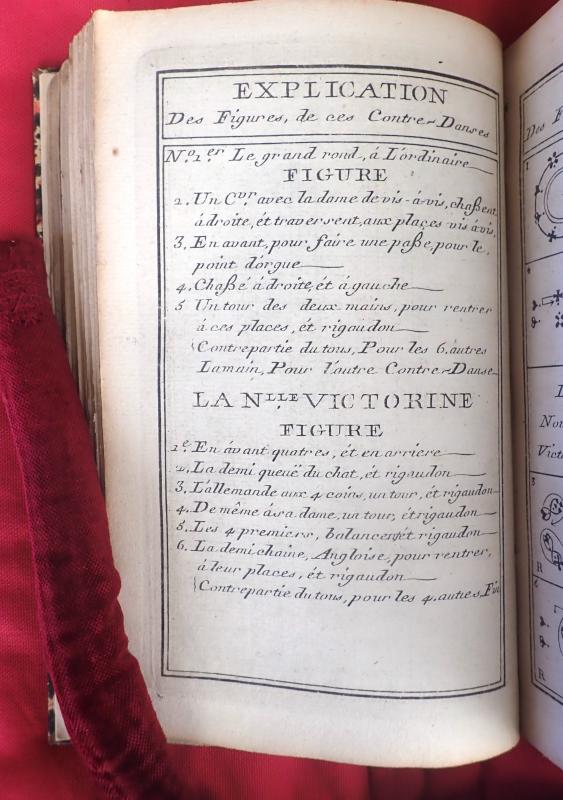 EXPLICATION
Des Figures, de ces Contre-Danses
N.o 1.er Le grand rond, á L'ordinaire
FIGURE
2. Un C.vr avec la dame de vis-á-vis, chaßent
á droite, ét traversent, aux places vis á vis,
3, En avant, pour faire une paße, pour le,
point d'orgue
4, Chaßé á droite, ét á gauche
5 Un tour des deux mains, pour rentrer
á ces places, ét rigaudon
Contrepartie du tous, Pour les 6, autres
La main, Pour l'autre Contre-Danse
LA N.LLE VICTORINE
FIGURE
1.e En ávant quatres, ét en arriere
2, La demi queuë du chat, ét rigaudon
3, L'allemande aux 4 coins, un tour, ét rigaudon
4, De même á sa dame, un tour, ét rigaudon
5, Les 4 premiers, balancer, ét rigaudon
6, La demi chaine, Angloise, pour rentrer,
á leur places, ét rigaudon
Contrepartie du tous, pour les 4, autres, Fin
Des F
1
4
Nou
Vict
3
R
6
R